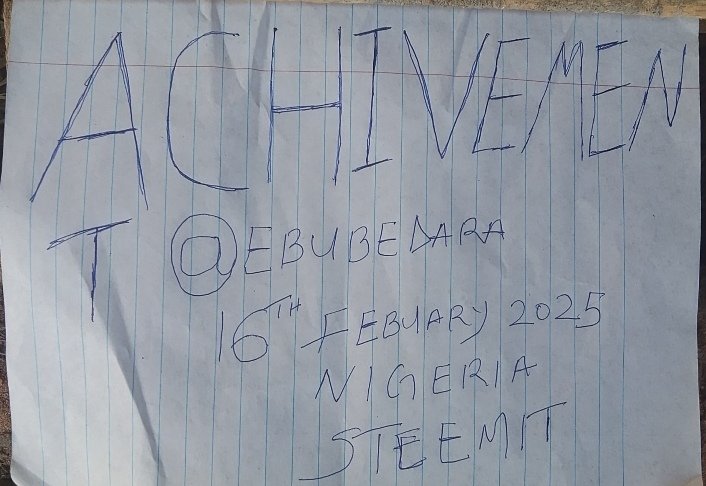 ACHIVEMEN
T @EBUBEDARA
16TH FEBUARY 2025
NIGERIA
STEEMIT